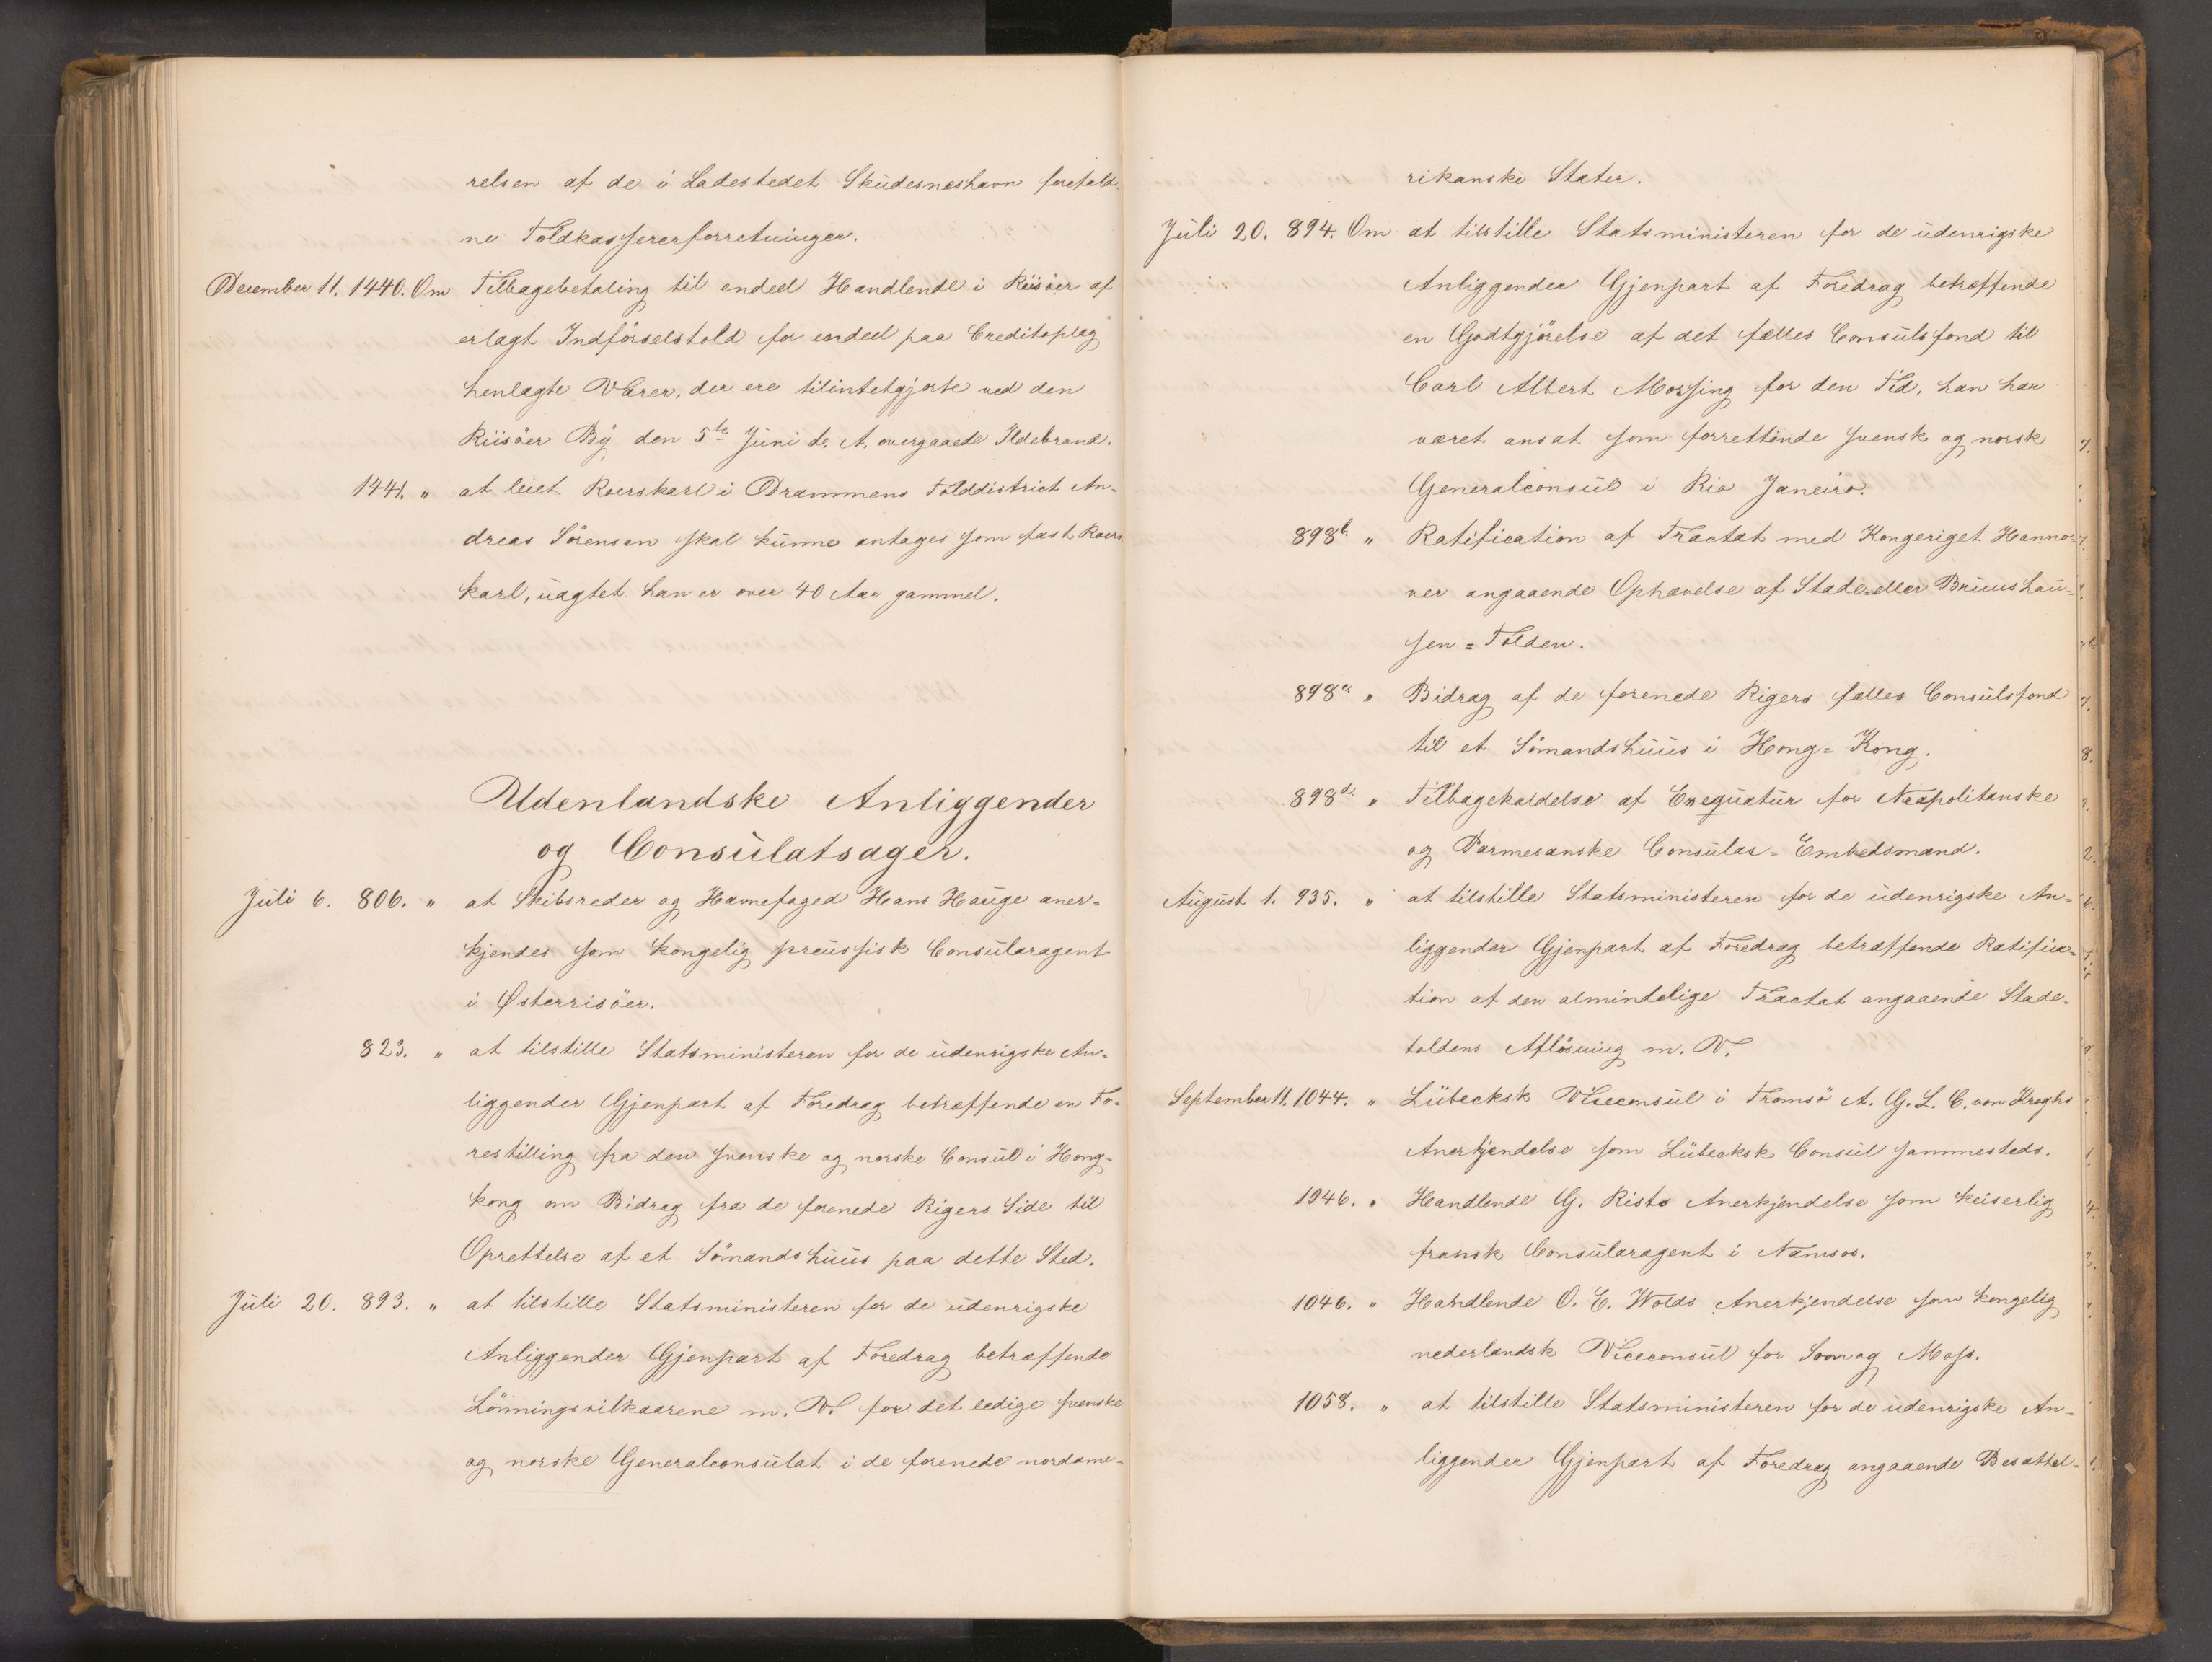 relsen af de i Ladestedet Skudesneshavn forefald-
ne Toldkassererforretninger.
December 11. 1440. Om Tilbagebetaling til endeel Handlende i Riisöer af
erlagt Indförselstold for endeel paa Creditoplag
henlagte Varer, der ere tilintetgjorte ved den
Riisöer By den 5te Juni d. A. overgaaede Ildebrand.
1441. " at leiet Roerskarl i Drammens Tolddistrict An-
dreas Sörensen skal kunne antages som fast Roers
karl, uagtet han er over 40 Aar gammel.
Udenlandske Anliggender
og Consulatsager.
Juli 6. 806. " at Skibsreder og Havnefoged Hans Hauge aner-
kjendes som kongelig preussisk Consularagent
i Østerrisöer.
823. " at tilstille Statsministeren for de udenrigske An-
liggender Gjenpart af Foredrag betræffende en Fo-
restilling fra den svenske og norske Consul i Hong-
kong om Bidrag fra de forenede Rigers Side til
Oprettelse af et Sömandshuus paa dette Sted.
Juli 20. 893. " at tilstille Statsministeren for de udenrigske
Anliggender Gjenpart af Foredrag betræffende
Lönningsvilkaarene m. V. for det ledige svenske
og norske Generalconsulat i de forenede nordame-
rikanske Stater.
Juli 20. 894. Om at tilstille Statsministeren for de udenrigske
Anliggender Gjenpart af Foredrag betræffende
en Godtgjörelse af det fælles Consulsfond til
Carl Albert Morsing for den Tid, han har
været ansat som forrettende svensk og norsk
Generalconsul i Rio Janeiro.
898b. " Ratification af Tractat med Kongeriget Hanno-
ver angaaende Ophævelse af Stade eller Bruushau-
sen=Tolden.
898c. " Bidrag af de forenede Rigers fælles Consulsfond
til et Sömandshuus i Hong=Kong.
898d. " Tilbagekaldelse af Exequatur for Neapolitanske
og Parmesanske Consular-Embedsmænd.
August 1. 935. " at tilstille Statsministeren for de udenrigske An-
liggender Gjenpart af Foredrag betræffende Ratifica-
tion af den almindelige Tractat angaaende Stade-
toldens Aflösning m. V.
September 11. 1044. " Lübecksk Viceconsul i Tromsö A. G. L. C. von Kroghs
Anerkjendelse som Lübecksk Consul sammesteds.
1046. " Handlende G. Risto Anerkjendelse som keiserlig
fransk Consularagent i Namsos.
1046. " Handlende O. E. Wolds Anerkjendelse som kongelig
nederlandsk Viceconsul for Soon og Moss.
1058. " at tilstille Statsministeren for de udenrigske An-
liggender Gjenpart af Foredrag angaaende Besættel-